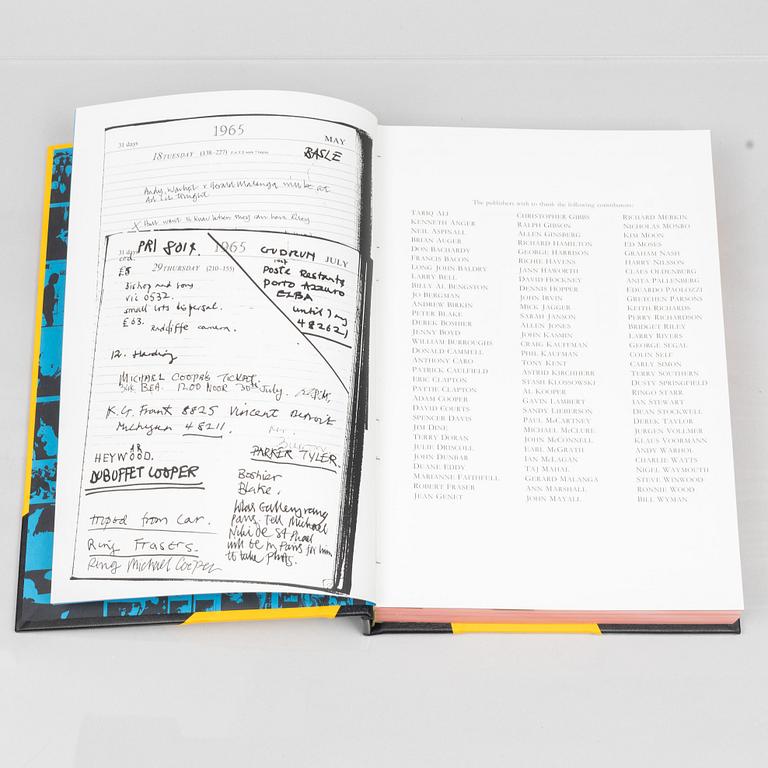 1965
31 days
MAY
18 TUESDAY (138–227)
BASLE
Andy Warhol + Gerard Malanga
X
want to know when they can have
31 days
1965
JULY
PRI 8014
£8
29 THURSDAY (210–155)
Bishop and sons
Vic 0532.
small lots dispersal.
£63.
Radcliffe camera.
GUDRUN
Poste Restante
porto Azzuro
ELBA
until
48262
12. Harding
MICHAEL COOPER TICKET
BEA. 12.00 NOON 30th July.
K.G. Frant 8825 Vincent Detroit
Michigan 48211.
HEYWOOD.
DUBUFFET COOPER
PARKER TYLER.
Boshier
Blake.
tell Michael
Niki de St
will be in Paris for him
to take photos.
tripod from car.
Ring Frasers.
Ring Michael Cooper
The publishers wish to thank the following contributors:
TARIQ ALI
KENNETH ANGER
NEIL ASPINALL
BRIAN AUGER
DON BACHARDY
FRANCIS BACON
LONG JOHN BALDRY
LARRY BELL
BILLY AL BENGSTON
JO BERGMAN
ANDREW BIRKIN
PETER BLAKE
DEREK BOSHIER
JENNY BOYD
WILLIAM BURROUGHS
DONALD CAMMELL
ANTHONY CARO
PATRICK CAULFIELD
ERIC CLAPTON
PATTIE CLAPTON
ADAM COOPER
DAVID COURTS
SPENCER DAVIS
JIM DINE
TERRY DORAN
JULIE DRISCOLL
JOHN DUNBAR
DUANE EDDY
MARIANNE FAITHFULL
ROBERT FRASER
JEAN GENET
CHRISTOPHER GIBBS
RALPH GIBSON
ALLEN GINSBERG
RICHARD HAMILTON
GEORGE HARRISON
RICHIE HAVENS
JANN HAWORTH
DAVID HOCKNEY
DENNIS HOPPER
JOHN IRVIN
MICK JAGGER
SARAH JANSON
ALLEN JONES
JOHN KASMIN
CRAIG KAUFFMAN
PHIL KAUFMAN
TONY KENT
ASTRID KIRCHHERR
STASH KLOSSOWSKI
AL KOOPER
GAVIN LAMBERT
SANDY LIEBERSON
PAUL McCARTNEY
MICHAEL McCLURE
JOHN McCONNELL
EARL McGRATH
IAN McLAGAN
TAJ MAHAL
GERARD MALANGA
ANN MARSHALL
JOHN MAYALL
RICHARD MERKIN
NICHOLAS MONRO
KIM MOON
ED MOSES
GRAHAM NASH
HARRY NILSSON
CLAES OLDENBURG
ANITA PALLENBERG
EDUARDO PAOLOZZI
GRETCHEN PARSONS
KEITH RICHARDS
PERRY RICHARDSON
BRIDGET RILEY
LARRY RIVERS
GEORGE SEGAL
COLIN SELF
CARLY SIMON
TERRY SOUTHERN
DUSTY SPRINGFIELD
RINGO STARR
IAN STEWART
DEAN STOCKWELL
DEREK TAYLOR
JURGEN VOLLMER
KLAUS VOORMANN
ANDY WARHOL
CHARLIE WATTS
NIGEL WAYMOUTH
STEVE WINWOOD
RONNIE WOOD
BILL WYMAN